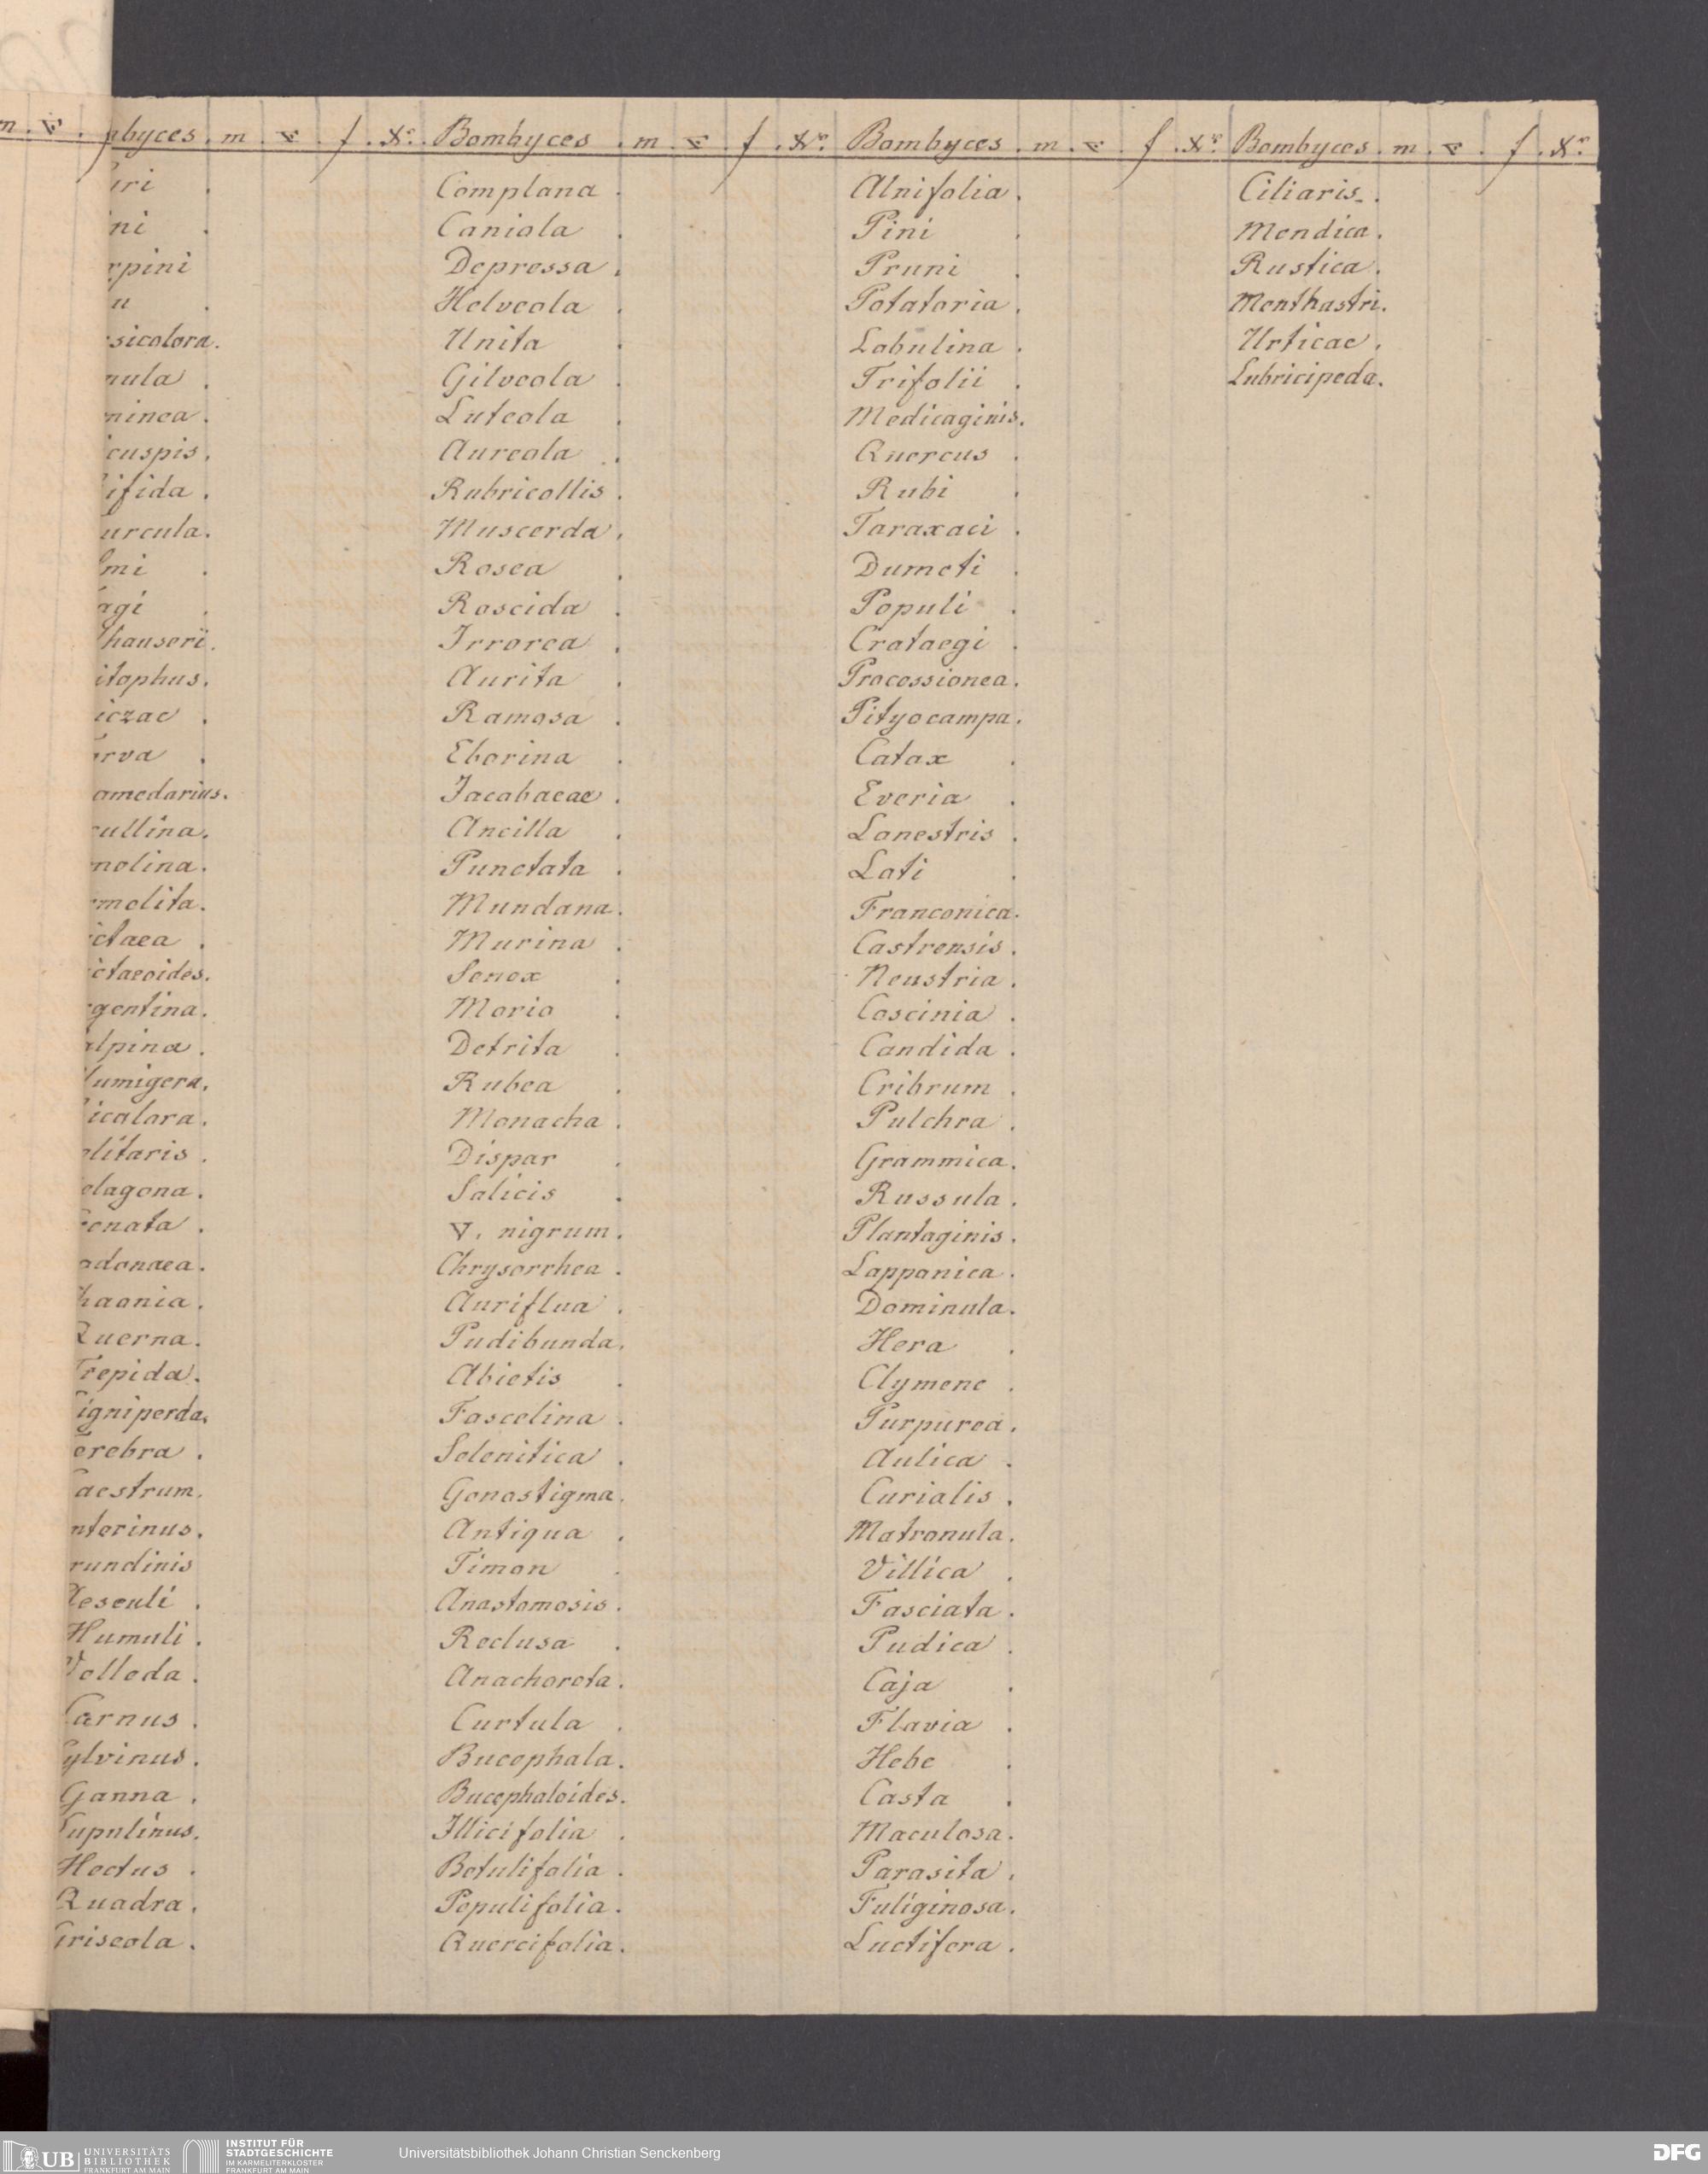 byces . m . f . Xr. Bombyces . m . f . Xr. Bombyces . m . f . Xr. Bombyces . m . f . Xr.
iri .
ni .
rpini
u .
sicolora.
nula .
minea .
cuspis .
ifida .
urcula .
mi .
agi .
hauserii .
itophus .
iczac .
rva .
omedarius.
cullina .
molina .
rmelita .
ctaea .
ctaeoides.
rgentina .
alpina .
lumigera .
icolora .
olitaris .
elagona .
renata .
odonaea .
haonia .
Querna .
Trepida .
igniperda .
erebra .
aestrum .
nterinus .
rundinis
Aesculi .
Humuli .
Velleda .
Carnus .
ylvinus .
Ganna .
Lupulinus .
Hectus .
Quadra .
Griseola .
Complana .
Caniola .
Depressa .
Helveola .
Unita .
Gilveola .
Luteola .
Aureola .
Rubricollis .
Muscerda .
Rosea .
Roscida .
Irrorea .
Aurita .
Ramosa .
Eborina .
Jacobaeae .
Ancilla .
Punctata .
Mundana .
Murina .
Senex .
Morio .
Detrita .
Rubea .
Monacha .
Dispar .
Salicis .
V. nigrum .
Chrysorrhea .
Auriflua .
Pudibunda .
Abietis .
Fascelina .
Selenitica .
Gonostigma .
Antiqua .
Timon .
Anastomosis .
Reclusa .
Anachoreta .
Curtula .
Bucephala .
Bucephaloides .
Illicifolia .
Betulifolia .
Populifolia .
Quercifolia .
Alnifolia .
Pini .
Pruni .
Potatoria .
Lobulina .
Trifolii .
Medicaginis .
Quercus .
Rubi .
Taraxaci .
Dumeti .
Populi .
Crataegi .
Processionea .
Pityocampa .
Catax .
Everia .
Lanestris .
Loti .
Franconica .
Castrensis .
Neustria .
Coscinia .
Candida .
Cribrum .
Pulchra .
Grammica .
Russula .
Plantaginis .
Lapponica .
Dominula .
Hera .
Clymene .
Purpurea .
Aulica .
Curialis .
Matronula .
Villica .
Fasciata .
Pudica .
Caja .
Flavia .
Hebe .
Casta .
Maculosa .
Parasita .
Fuliginosa .
Luctifera .
Ciliaris .
Mendica .
Rustica .
Menthastri .
Urticae .
Lubricipeda .
UB UNIVERSITÄTS BIBLIOTHEK FRANKFURT AM MAIN
INSTITUT FÜR STADTGESCHICHTE IM KARMELITERKLOSTER FRANKFURT AM MAIN
Universitätsbibliothek Johann Christian Senckenberg
DFG